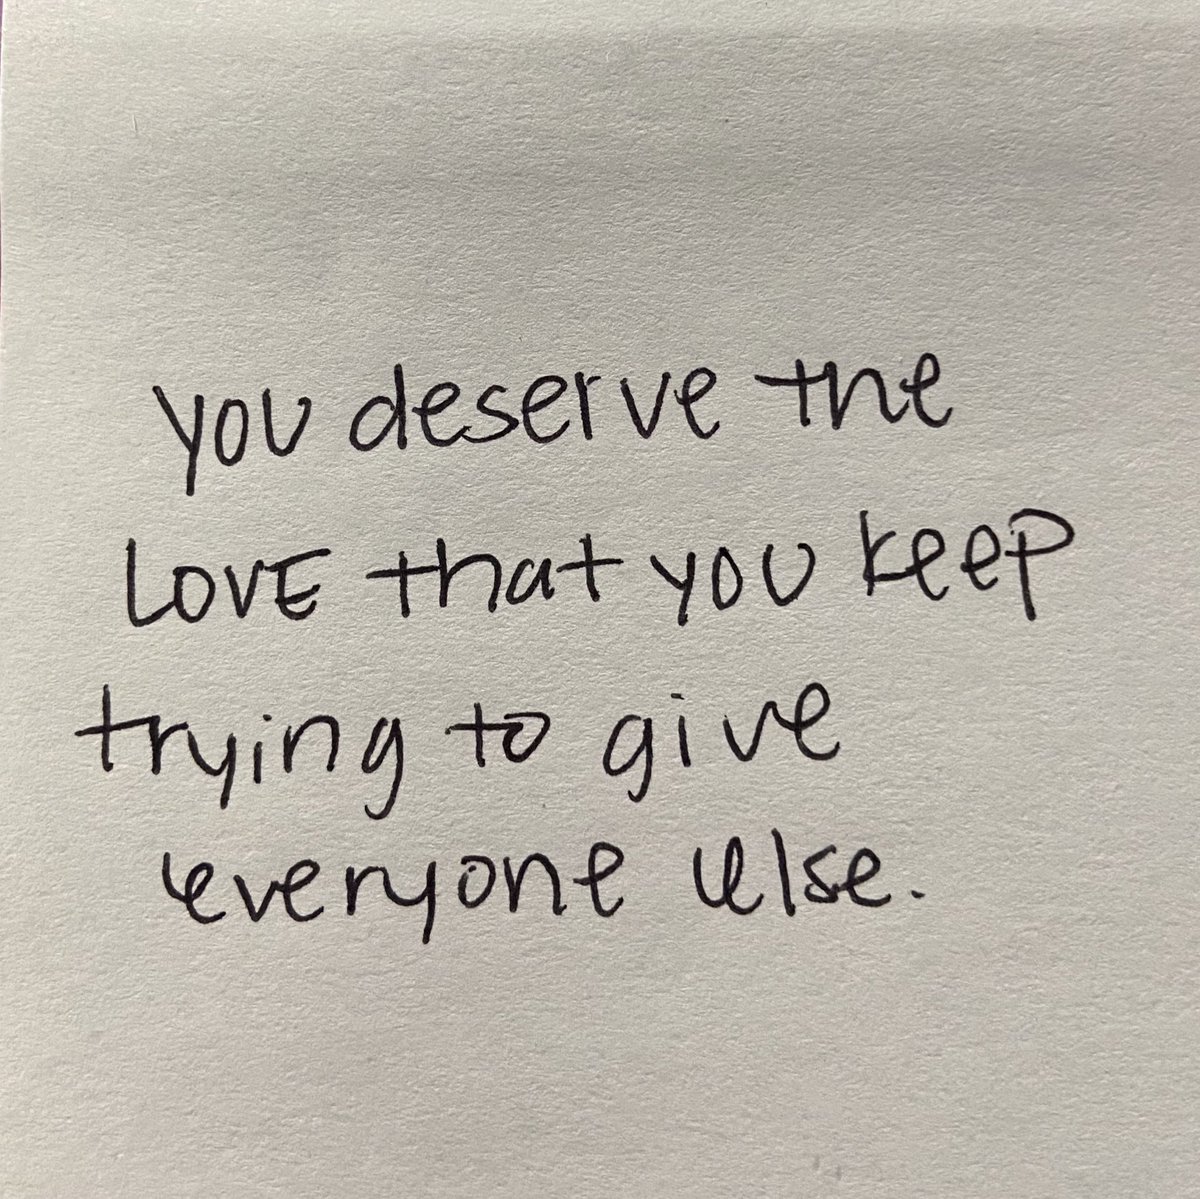 you deserve the
LOVE that you keep
trying to give
everyone else.